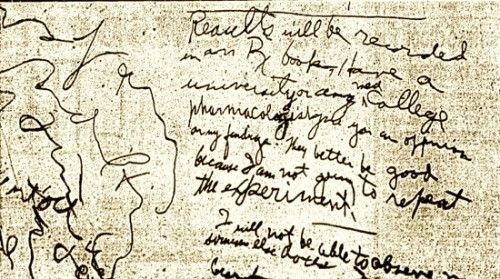 Results will be recorded
in an Rx book. Have a
university or any med College
pharmacologist give you an opinion
on my findings. They better be good
because I am not going to repeat
the experiment.
I will not be able to observe
someone else